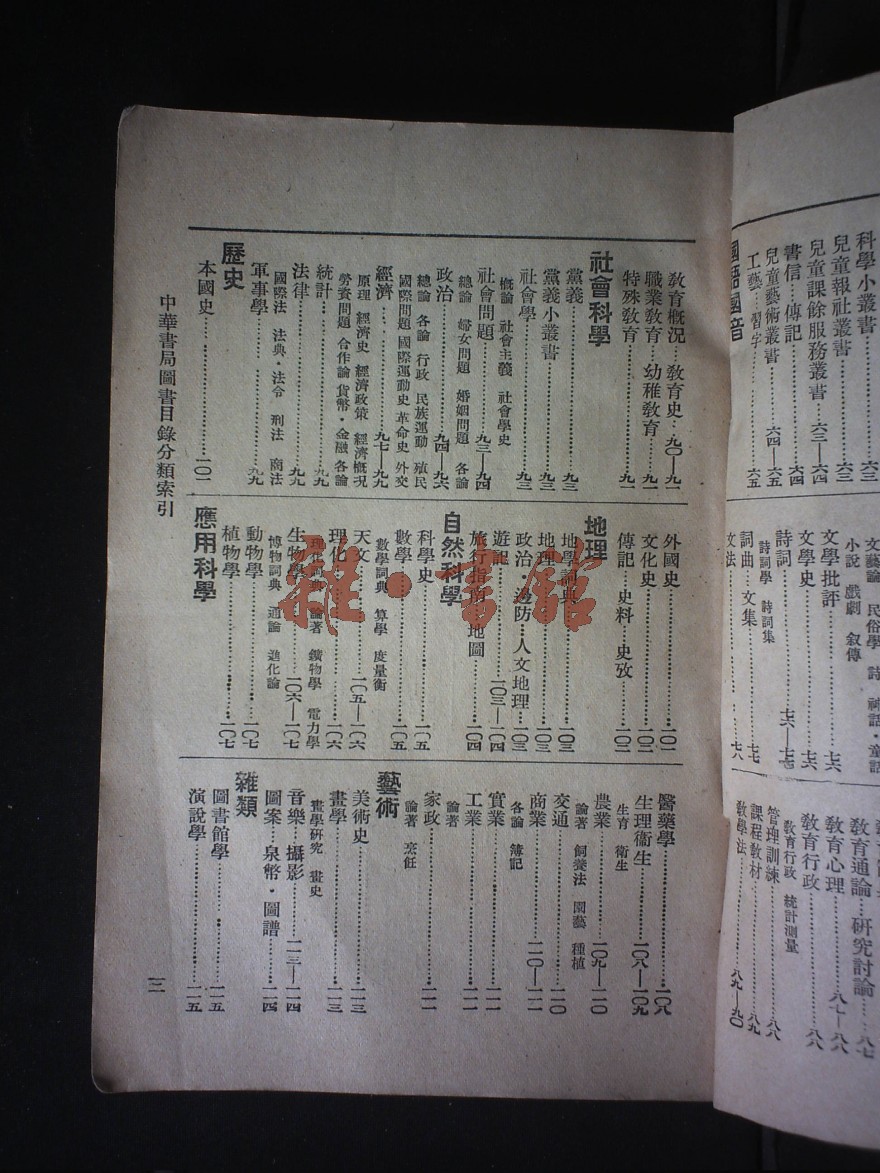 科學小叢書……六三
兒童報社叢書……六三
兒童課餘服務叢書……六三—六四
書信……傳記……六四
兒童藝術叢書……六四—六五
工藝……習字……六五
國語國音
小說 戲劇 叙傳
文學批評……七六
文學史……七六
詩詞……七六—七七
詩詞學 詩詞集
詞曲……文集……七七
文法……七八
教育通論……研究討論……八七
教育心理……八七—八八
教育行政……八八
教育行政 統計測量
管理訓練……八八
課程教材……八九
教學法……八九—九〇
教育概況……教育史……九〇—九一
職業教育……幼稚教育……九一
特殊教育……九一
社會科學
黨義……九三
黨義小叢書……九三
社會學……九三
概論 社會主義 社會學史
社會問題……九三—九四
總論 婦女問題 婚姻問題 各論
政治……九四—九六
總論 各論 行政 民族運動 殖民
國際問題 國際運動史 革命史 外交
經濟……九七—九九
原理 經濟史 經濟政策 經濟概況
勞資問題 合作論 貨幣·金融 各論
統計……九九
法律……九九
國際法 法典·法令 刑法 商法
軍事學……九九
歷史
本國史……一〇一
外國史……一〇一
文化史……一〇二
傳記……史料……史攷……一〇二
地理
地學詞典……一〇三
地理……一〇三
政治……邊防……人文地理……一〇三
遊記……一〇三—一〇四
旅行指南……地圖……一〇四
自然科學
科學史……一〇五
數學……一〇五
數學詞典 算學 度量衡
天文……一〇五—一〇六
理化……一〇六
理化詞典 論著 鑛物學 電力學
生物學……一〇六—一〇七
博物詞典 通論 進化論
動物學……一〇七
植物學……一〇七
應用科學
醫藥學……一〇八
生理衞生……一〇八—一〇九
生育 衞生
農業……一〇九—一一〇
論著 飼養法 園藝 種植
交通……一一〇
商業……一一〇—一一一
各論 簿記
實業……一一一
工業……一一一
論著
家政……一一一
論著 烹飪
藝術
美術史……一一三
畫學……一一三
畫學研究 畫史
音樂……攝影……一一三—一一四
圖案……泉幣·圖譜……一一四
雜類
圖書館學……一一五
演說學……一一五
中華書局圖書目錄分類索引
三
雅·書館